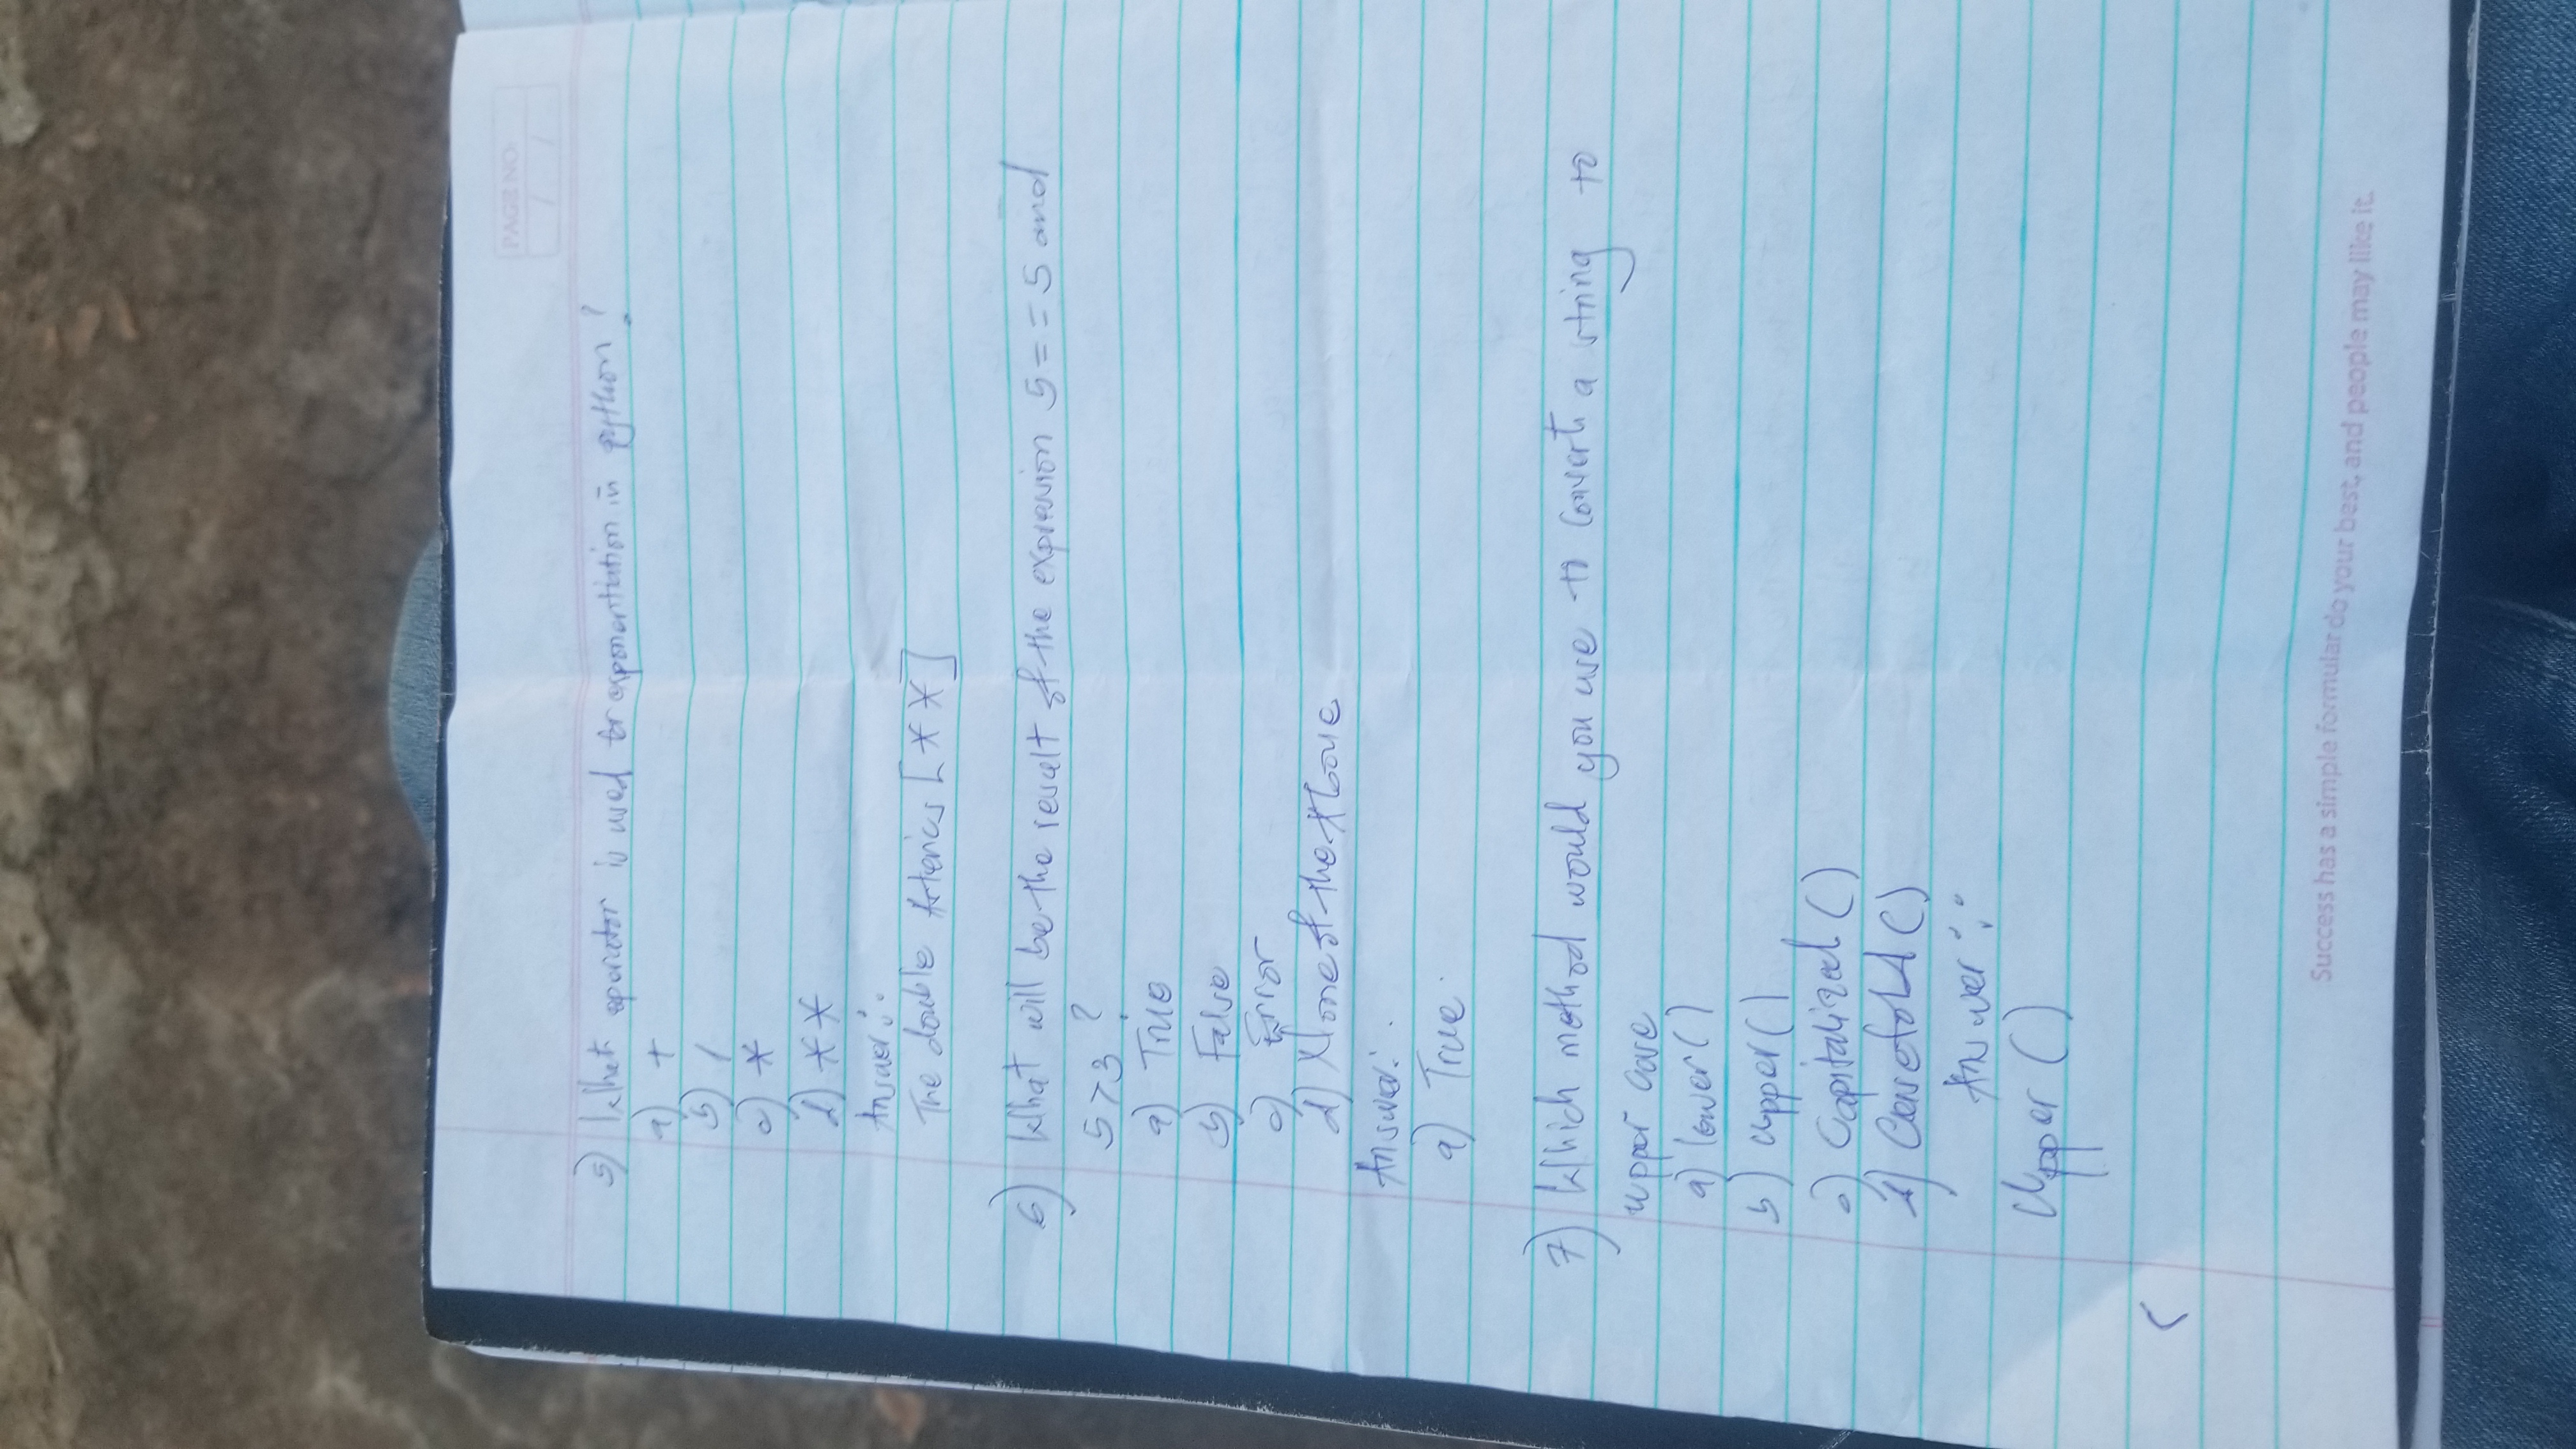 PAGE NO:
5) What operator is used for exponentiation in python?
a) +
b) /
c) *
d) **
Answer:.
The double Asterics [**]
6) What will be the result of the expression 5==5 and
5>3 ?
a) True
b) False
c) Error
d) None of the Above
Answer:.
a) True.
7) Which method would you use to convert a string to
upper case
a) lower()
b) upper()
c) Capitalized()
d) Casefold()
Answer:
Upper()
Success has a simple formular do your best, and people may like it.